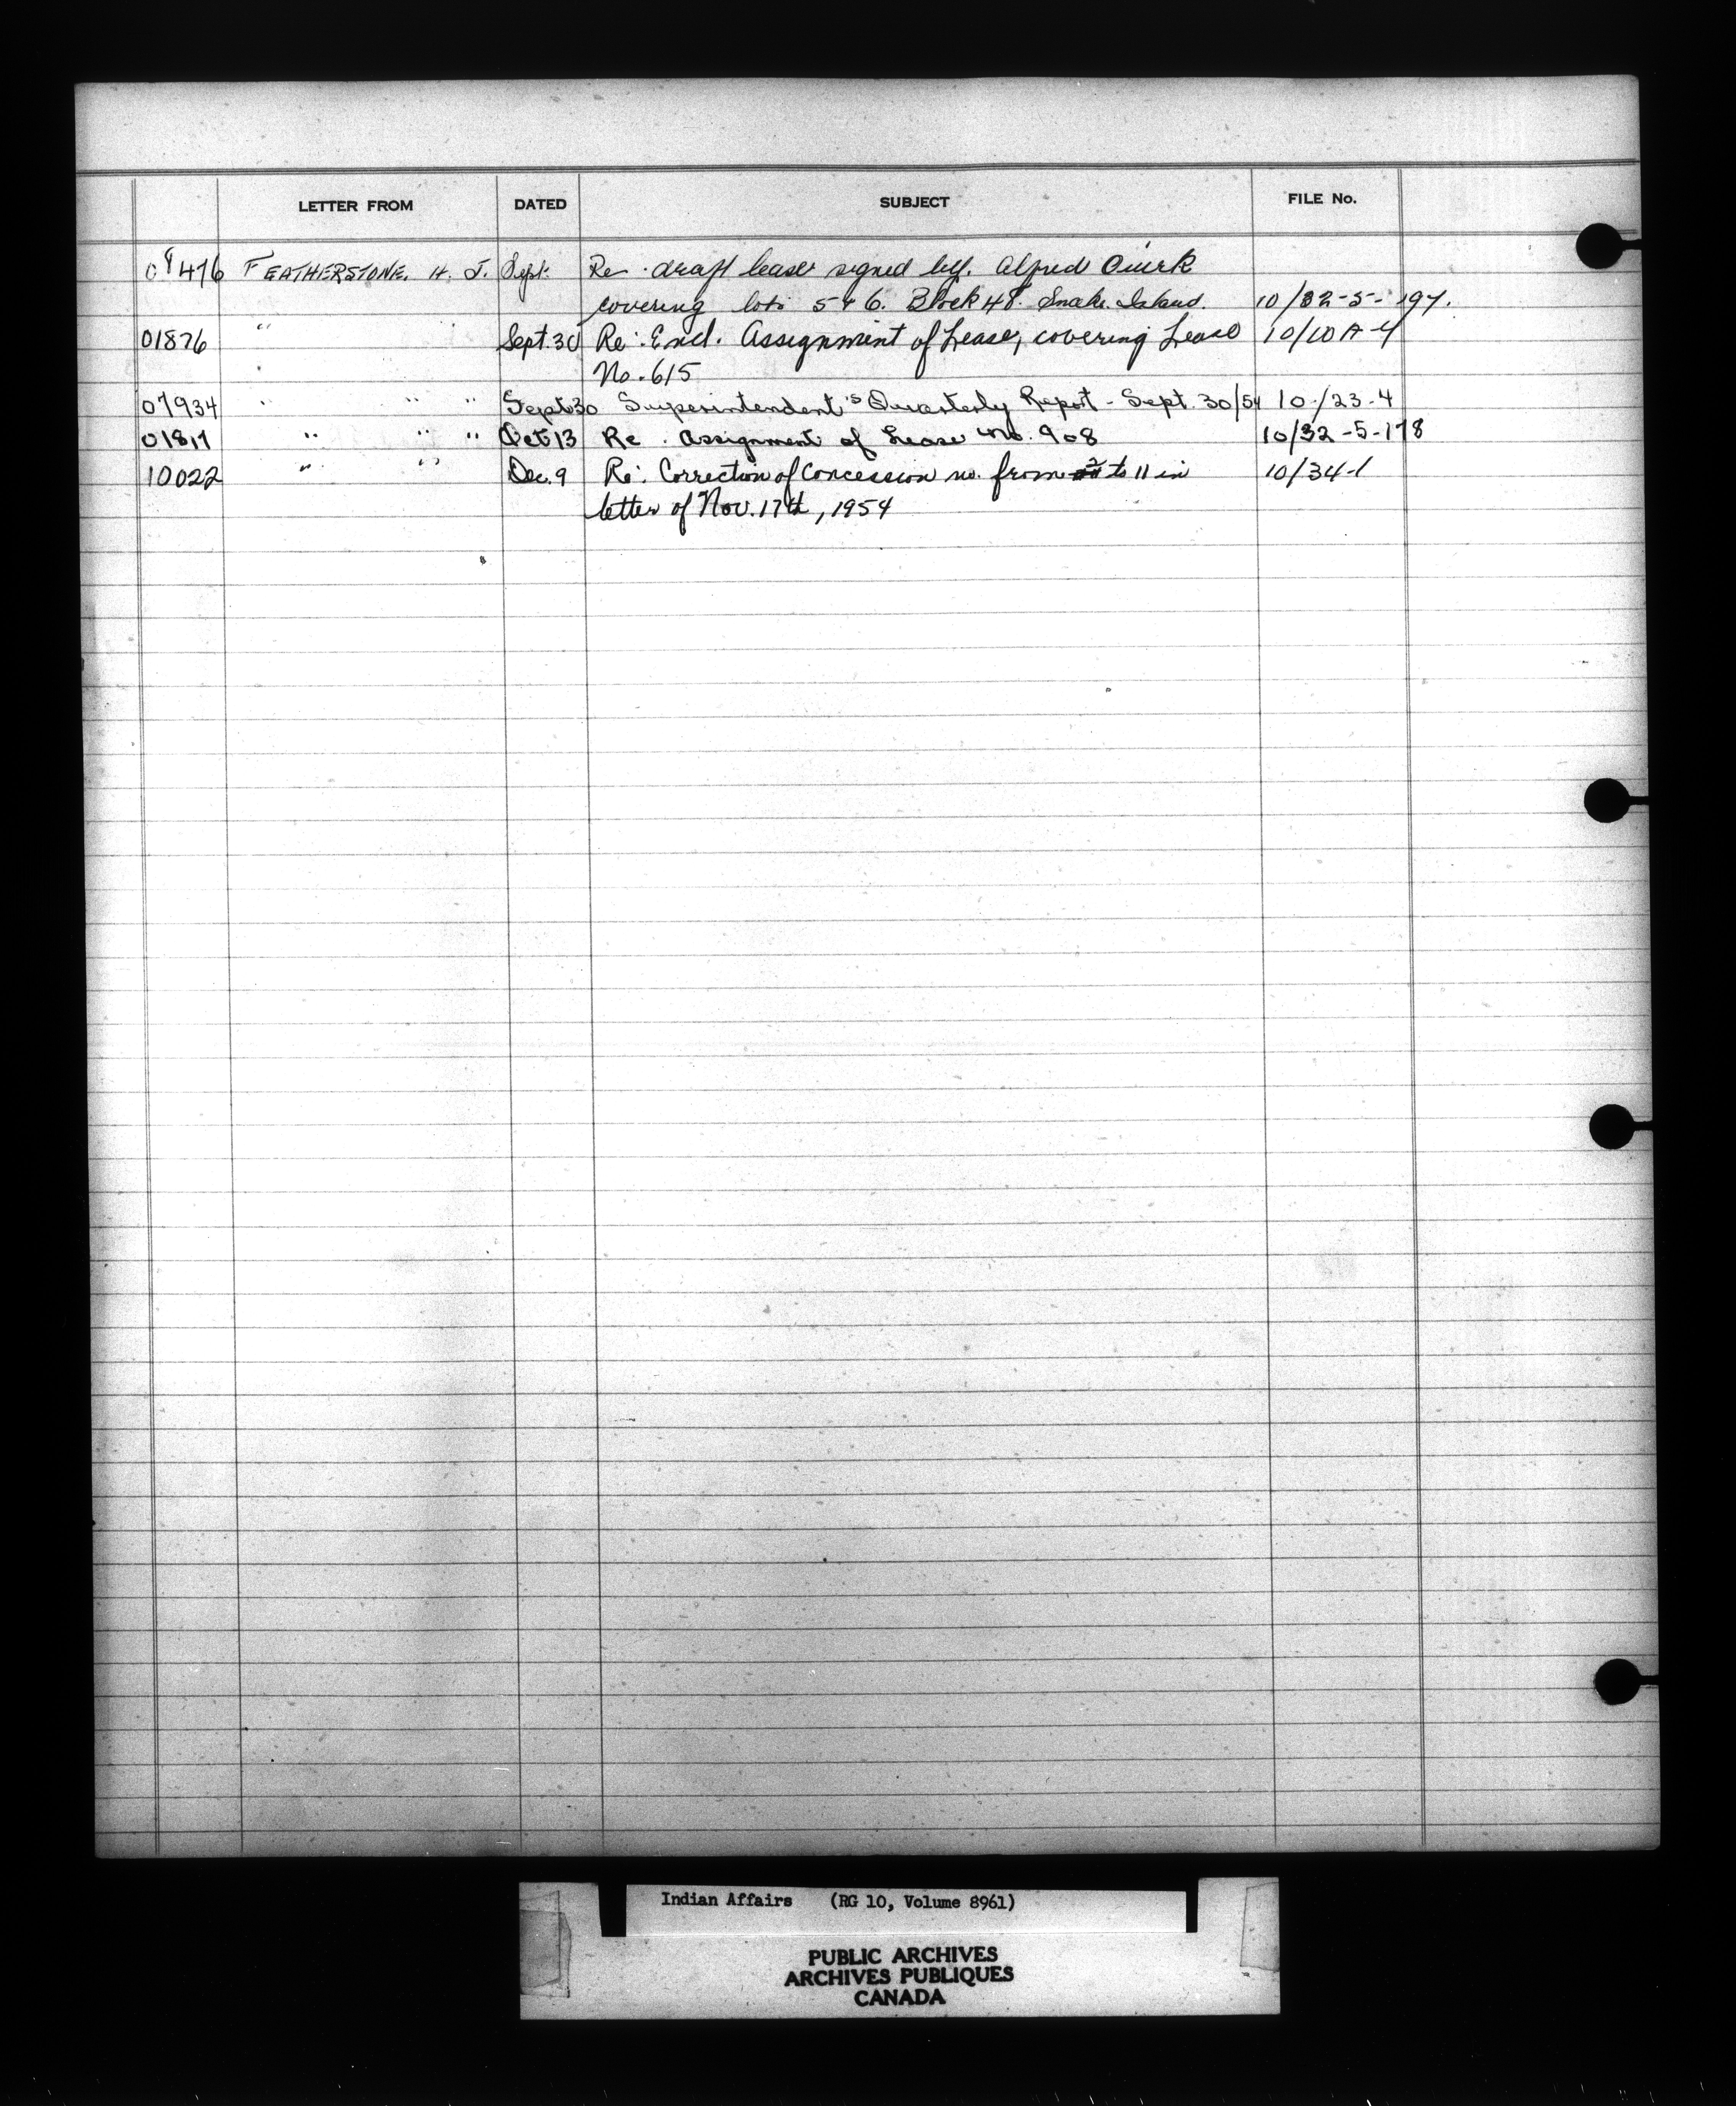 LETTER FROM DATED SUBJECT FILE No.
08476 FEATHERSTONE, H. J. Sept. Re draft lease signed by Alfred Quirk
covering lots 5 & 6. Block 48. Snake Island. 10/32-5-197.
01876 " Sept. 30 Re: Encl. Assignment of Lease, covering Lease 10/10A-4
No. 615
07934 " " " Sept 30 Superintendent's Quarterly Report - Sept. 30/54 10/23-4
01817 " " " Oct 13 Re. Assignment of Lease No. 908 10/32-5-178
10022 " " Dec. 9 Re: Correction of Concession no. from 2 to 11 in 10/34-1
letter of Nov. 17th, 1954
Indian Affairs (RG 10, Volume 8961)
PUBLIC ARCHIVES
ARCHIVES PUBLIQUES
CANADA